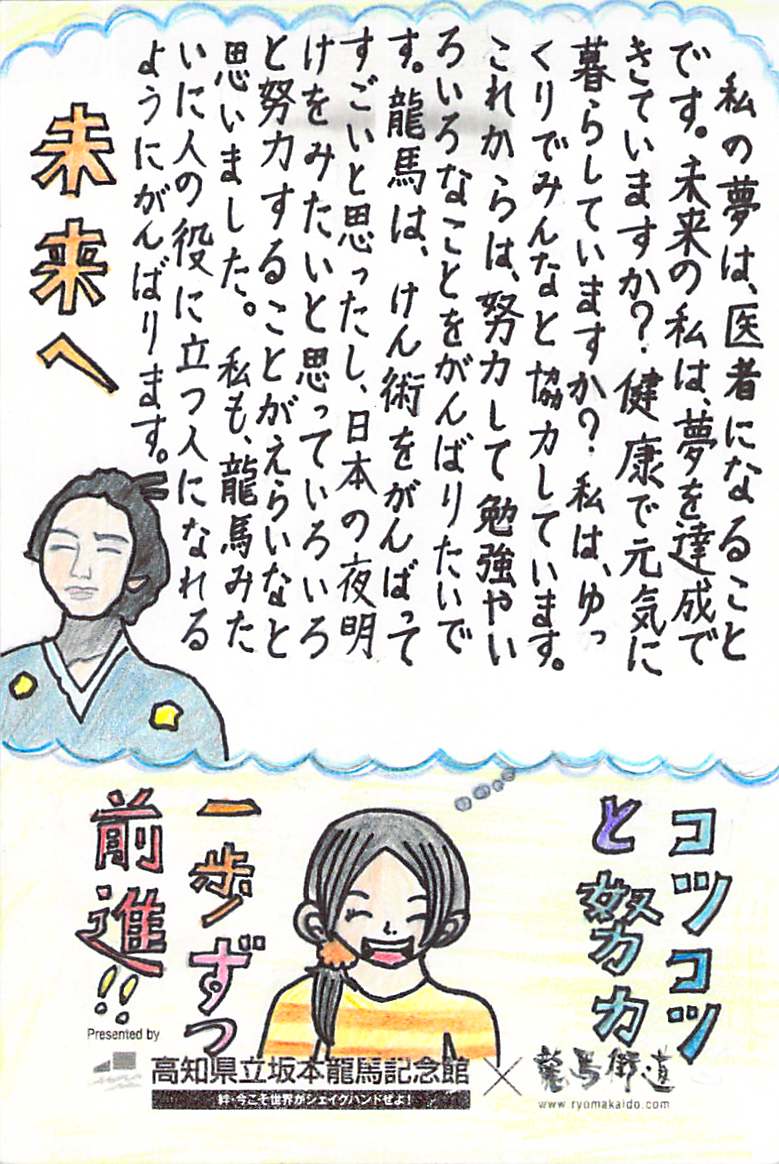 私の夢は、医者になること
です。未来の私は、夢を達成で
きていますか？健康で元気に
暮らしていますか？私は、ゆっ
くりでみんなと協力しています。
これからは、努力して勉強やい
ろいろなことをがんばりたいで
す。龍馬は、けん術をがんばって
すごいと思ったし、日本の夜明
けをみたいと思っていろいろ
と努力することがえらいなと
思いました。私も、龍馬みた
いに人の役に立つ人になれる
ようにがんばります。
未来へ
コツコツ
と努力
一歩ずつ
前進!!
Presented by
高知県立坂本龍馬記念館
絆・今こそ世界がシェイクハンドせよ!
×
龍馬街道
www.ryomakaido.com